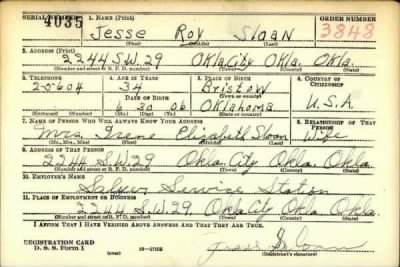 SERIAL NUMBER 1. NAME (Print) ORDER NUMBER
4035 Jesse Roy Sloan 3848
(First) (Middle) (Last)
2. ADDRESS (Print)
2244 S.W. 29 Okla City Okla. Okla.
(Number and street or R. F. D. number) (Town) (County) (State)
3. TELEPHONE 4. AGE IN YEARS 5. PLACE OF BIRTH 6. COUNTRY OF CITIZENSHIP
2-5604 34 Bristow
DATE OF BIRTH (Town or county)
6 30 06 Oklahoma U.S.A.
(Exchange) (Number) (Mo.) (Day) (Yr.) (State or country)
7. NAME OF PERSON WHO WILL ALWAYS KNOW YOUR ADDRESS 8. RELATIONSHIP OF THAT PERSON
Mrs. Irene Elizabeth Sloan Wife
(Mr., Mrs., Miss) (First) (Middle) (Last)
9. ADDRESS OF THAT PERSON
2244 S.W. 29 Okla. City Okla. Okla.
(Number and street or R. F. D. number) (Town) (County) (State)
10. EMPLOYER'S NAME
Service Station
11. PLACE OF EMPLOYMENT OR BUSINESS
2244 S.W. 29. Okla. City Okla. Okla.
(Number and street or R. F. D. number) (Town) (County) (State)
I AFFIRM THAT I HAVE VERIFIED ABOVE ANSWERS AND THAT THEY ARE TRUE.
REGISTRATION CARD
D. S. S. Form 1 (Registrant's signature)